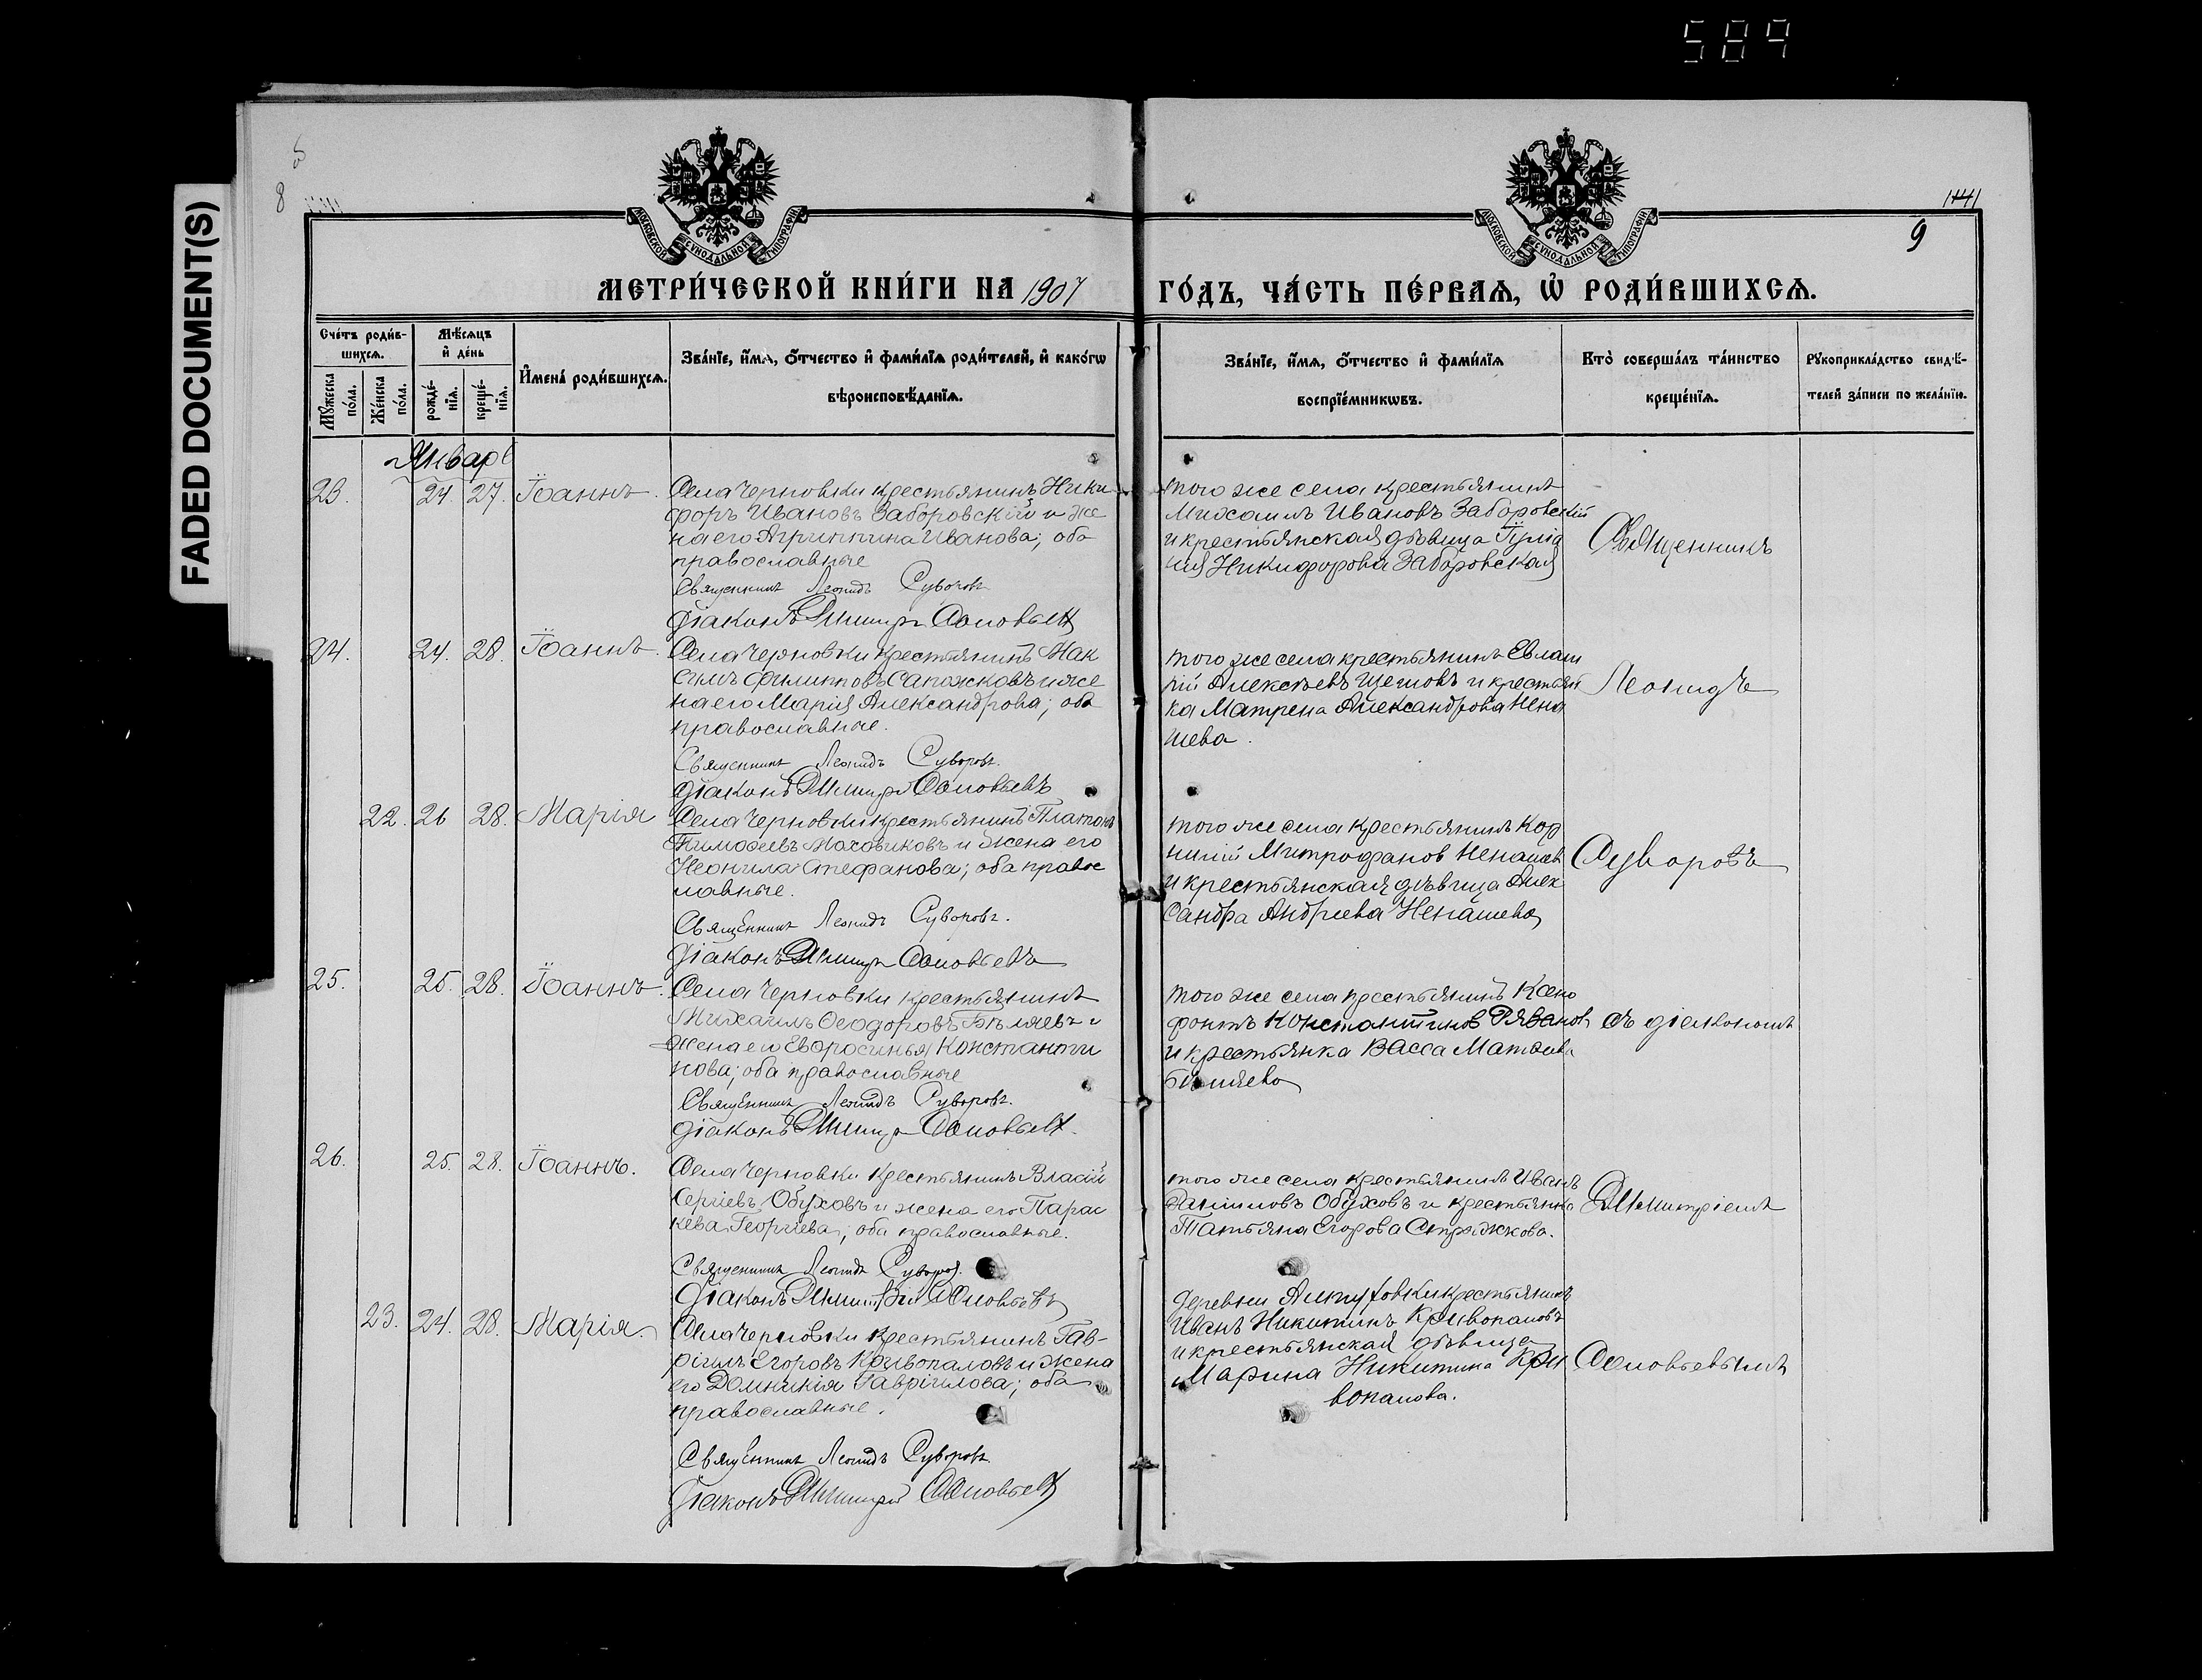 589
FADED DOCUMENT(S)
8
1441
9
МОСКОВСКОЙ СѴНОДАЛЬНОЙ ТИПОГРАФІИ
МОСКОВСКОЙ СѴНОДАЛЬНОЙ ТИПОГРАФІИ
МЕТРИ́ЧЕСКОЙ КНИ́ГИ НА 1907 ГО́ДЪ, ЧА́СТЬ ПЕ́РВАѦ, Ѽ РОДИ́ВШИХСѦ.
Сче́тъ роди́в-
шихсѧ.
Мѣ́сѧцъ
и҆ де́нь
Мꙋ́жеска по́ла.
Же́нска по́ла.
рожде́-
нїѧ.
креще́-
нїѧ.
И҆мена̀ роди́вшихсѧ.
Зва́нїе, и҆́мѧ, ѻ҆́тчество и҆ фами́лїѧ роди́телей, и҆ како́гѡ
вѣроисповѣ́данїѧ.
Зва́нїе, и҆́мѧ, ѻ҆́тчество и҆ фами́лїѧ
воспрїе́мникѡвъ.
Кто̀ соверша́лъ та́инство
креще́нїѧ.
Рꙋкоприкла́дство свидѣ́-
телей за́писи по жела́нїю.
Январь
23. 24. 27. Іоаннъ.
Села Черновки крестьянинъ Ники
форъ Ивановъ Заборовскій и же
на его Агриппина Иванова; оба
православные
Священникъ Леонидъ Суворовъ
Діаконъ Димитрій Соловьевъ
того же села крестьянинъ
Михаилъ Ивановъ Заборовскій
и крестьянская дѣвица Іулiа
нія Никифорова Заборовская
Священникъ
24. 24. 28. Іоаннъ.
Села Черновки крестьянинъ Мак
симъ Филипповъ Сапожковъ и же
на его Марія Александрова; оба
православные.
Священникъ Леонидъ Суворовъ.
Діаконъ Димитрій Соловьевъ
того же села крестьянинъ Евлам
пій Алексѣевъ Щегловъ и крестьян
ка Матрена Александрова Нена
шева.
Леонидъ
22. 26 28. Марія
Села Черновки крестьянинъ Платонъ
Тимоѳеевъ Маховиковъ и жена его
Неонила Стефанова; оба правос
лавные.
Священникъ Леонидъ Суворовъ.
Діаконъ Димитрій Соловьевъ
того же села крестьянинъ Кор
нилій Митрофанов Ненашев
и крестьянская дѣвица Алек
сандра Андреева Ненашева
Суворовъ
25. 25. 28. Іоаннъ.
Села Черновки крестьянинъ
Михаилъ Ѳеодоровъ Бѣляевъ и
жена его Евфросинья Константи
нова; оба православные
Священникъ Леонидъ Суворовъ.
Діаконъ Димитрій Соловьевъ.
того же села крестьянинъ Ксено
фонтъ Константинов Рязанов
и крестьянка Васса Матѳеева
Бѣляева
съ діакономъ
26. 25. 28. Іоаннъ.
Села Черновки крестьянинъ Власій
Сергіевъ Обуховъ и жена его Парас
кева Георгіева; оба православные.
Священникъ Леонидъ Суворовъ.
Діаконъ Димитрій Соловьевъ
того же села крестьянинъ Иванъ
Даніиловъ Обуховъ и крестьянка
Татьяна Егорова Стряжкова.
Димитріемъ
23. 24. 28. Марія.
Села Черновки крестьянинъ Гав-
ріилъ Егоровъ Кривопаловъ и жена
его Домникія Гавріилова; оба
православные.
Священникъ Леонидъ Суворовъ
Діаконъ Димитрій Соловьевъ
деревни крестьянинъ
Иванъ Никитинъ Кривопаловъ
и крестьянская дѣвица
Марина Никитина Кри
вопалова.
Соловьевымъ